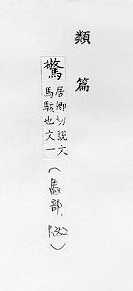 類篇
驚
居卿切說文
馬駭也文一
（馬部，